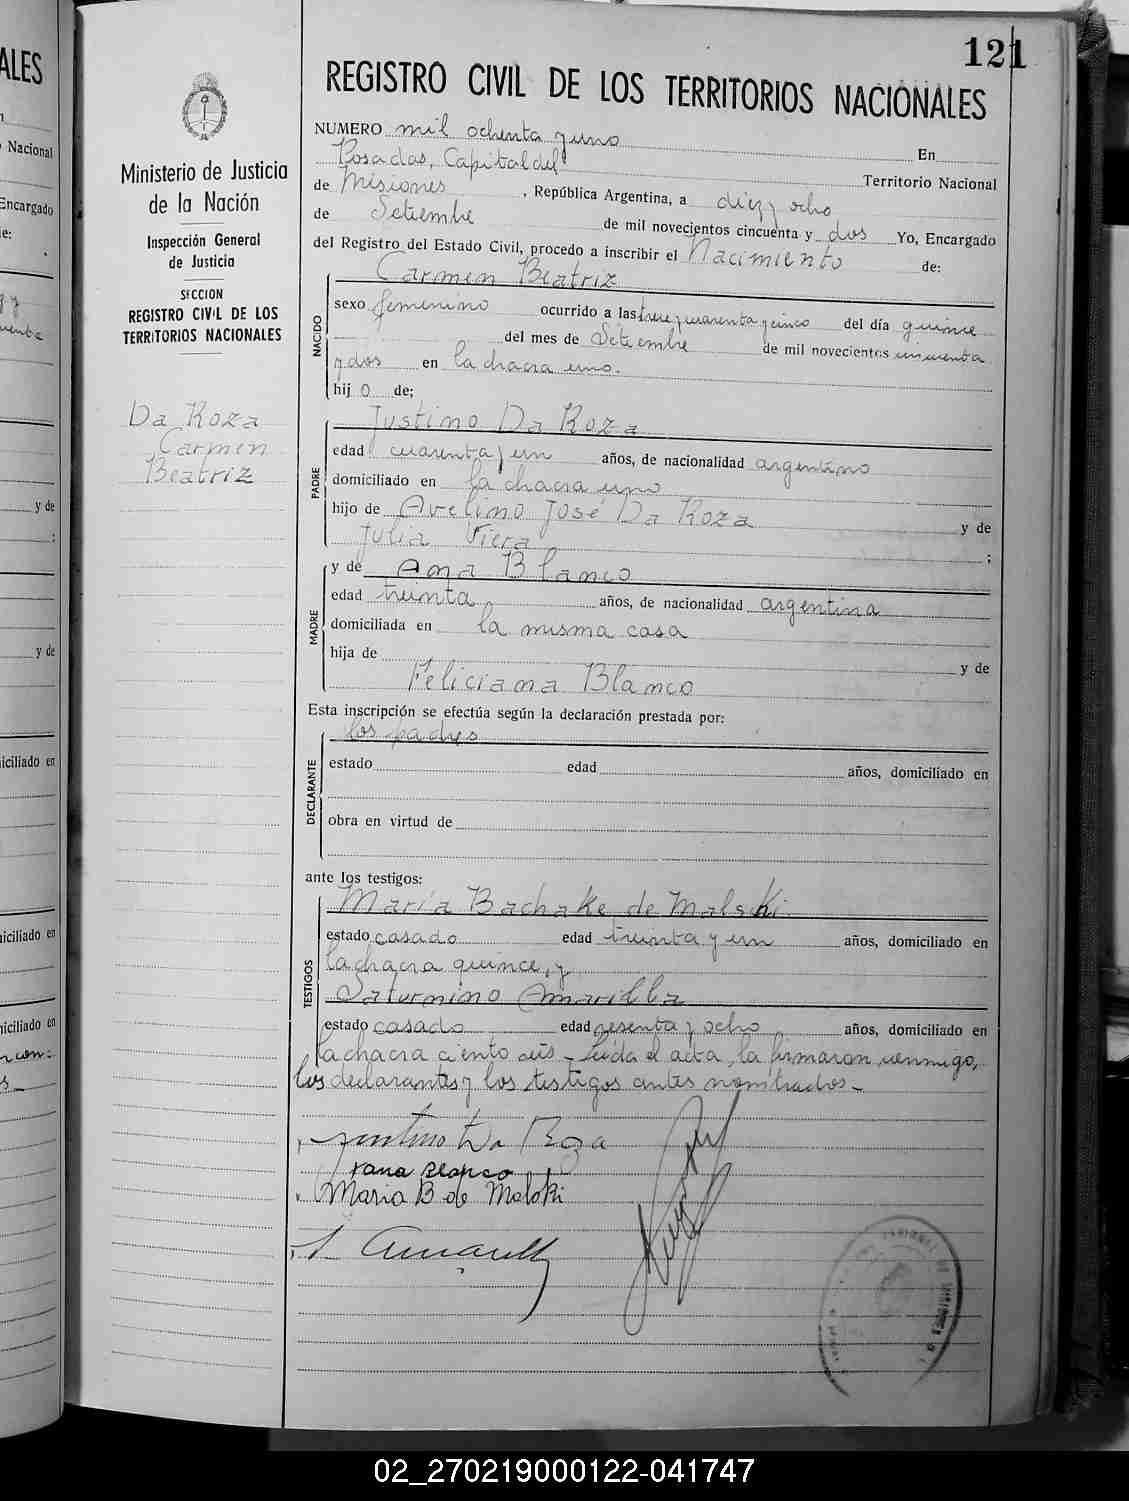 121
REGISTRO CIVIL DE LOS TERRITORIOS NACIONALES
Ministerio de Justicia
de la Nación
Inspección General
de Justicia
SECCION
REGISTRO CIVIL DE LOS
TERRITORIOS NACIONALES
Da Roza
Carmen
Beatriz
NUMERO mil ochenta y uno En
Posadas, Capital del Territorio Nacional
de Misiones, República Argentina, a diez y ocho
de Setiembre de mil novecientos cincuenta y dos Yo, Encargado
del Registro del Estado Civil, procedo a inscribir el Nacimiento de:
Carmen Beatriz
NACIDO
sexo femenino ocurrido a las trece y cuarenta y cinco del día quince
del mes de Setiembre de mil novecientos cincuenta
y dos en la chacra uno.
hij o de;
Justino Da Roza
PADRE
edad cuarenta y un años, de nacionalidad argentino
domiciliado en la chacra uno
hijo de Avelino José Da Roza y de
Julia Viera ;
y de Ana Blanco
MADRE
edad treinta años, de nacionalidad argentina
domiciliada en la misma casa
hija de y de
Feliciana Blanco
Esta inscripción se efectúa según la declaración prestada por:
los padres
DECLARANTE
estado edad años, domiciliado en
obra en virtud de
ante los testigos:
María Bachake de Malski
TESTIGOS
estado casado edad treinta y un años, domiciliado en
la chacra quince, y
Saturnino Amarilla
estado casado edad sesenta y ocho años, domiciliado en
la chacra ciento seis - Leida el acta, la firmaron conmigo,
los declarantes y los testigos antes nombrados -
Justino Da Roza
Ana Blanco
Maria B de Maloki
ALES
Nacional
Encargado
y de
y de
iciliado en
iciliado en
niciliado en
02_270219000122-041747